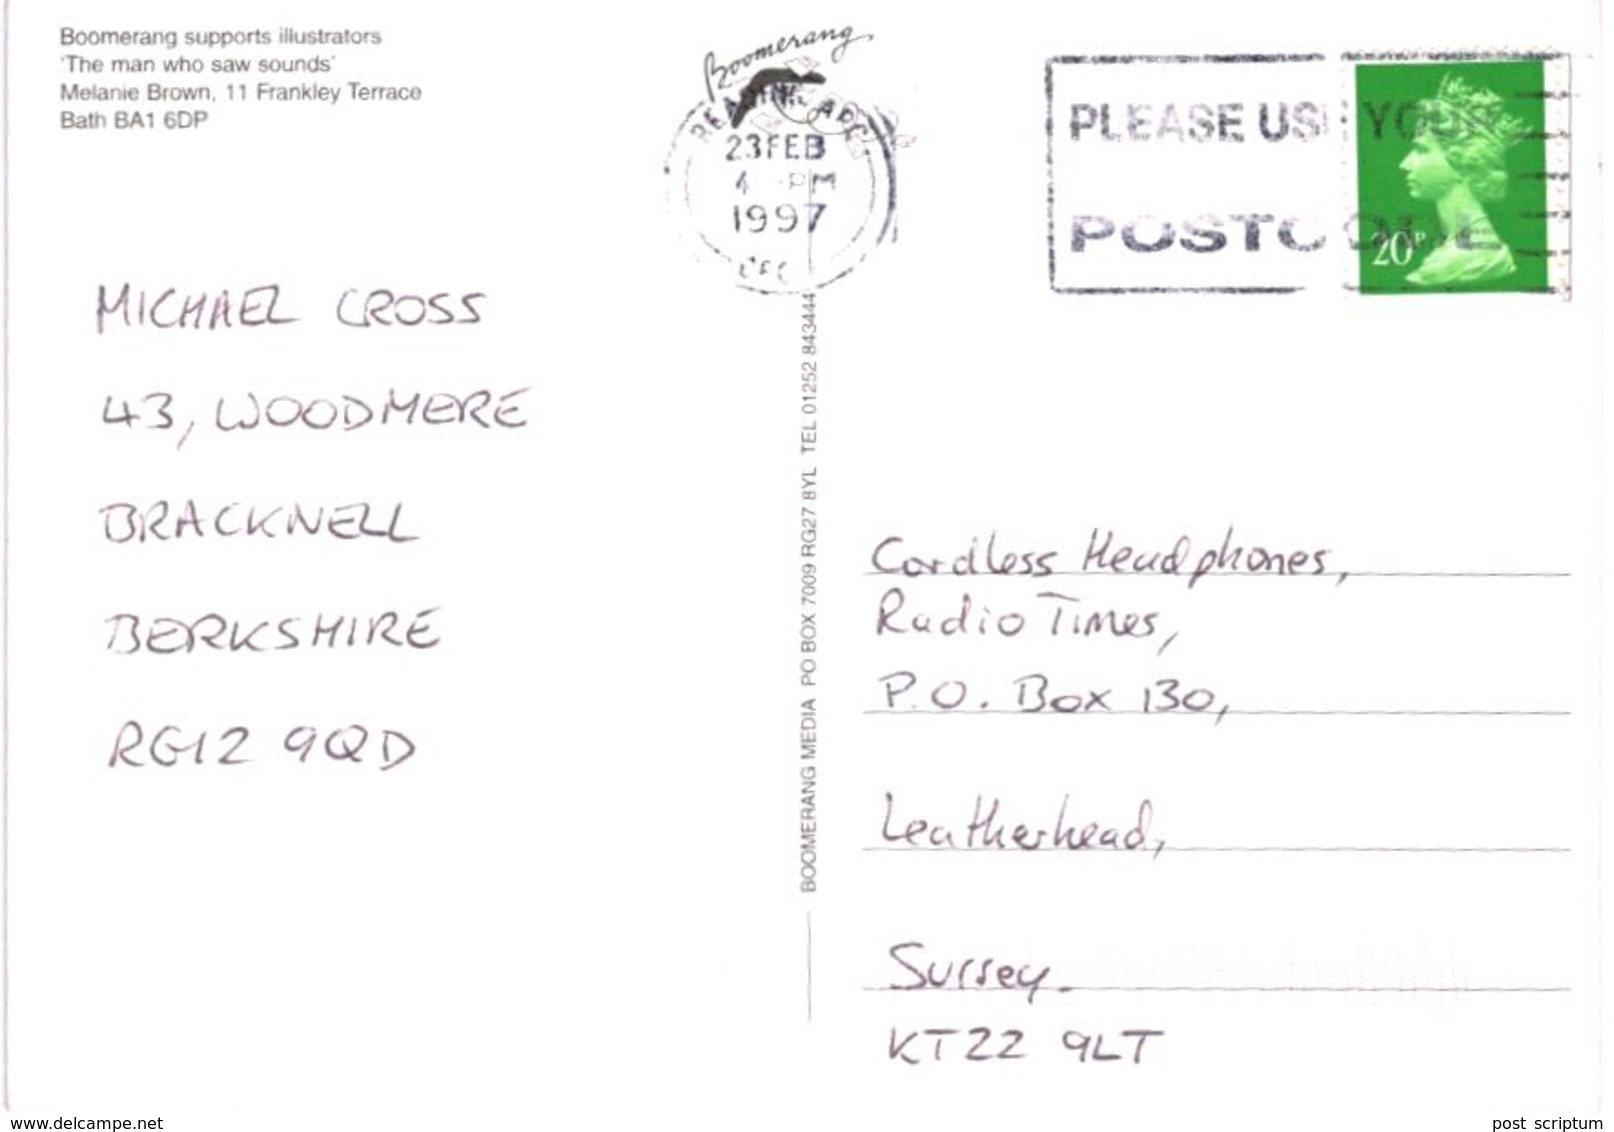 Boomerang supports illustrators
'The man who saw sounds'
Melanie Brown, 11 Frankley Terrace
Bath BA1 6DP
Boomerang
READING
23 FEB
PM
1997
PLEASE USE YOUR
POSTCODE
20P
MICHAEL CROSS
43, WOODMERE
BRACKNELL
BERKSHIRE
RG12 9QD
BOOMERANG MEDIA PO BOX 7009 RG27 8YL TEL 01252 843444
Cordless Headphones,
Radio Times,
P.O. Box 130,
Leatherhead,
Surrey.
KT22 9LT
www.delcampe.net
post scriptum